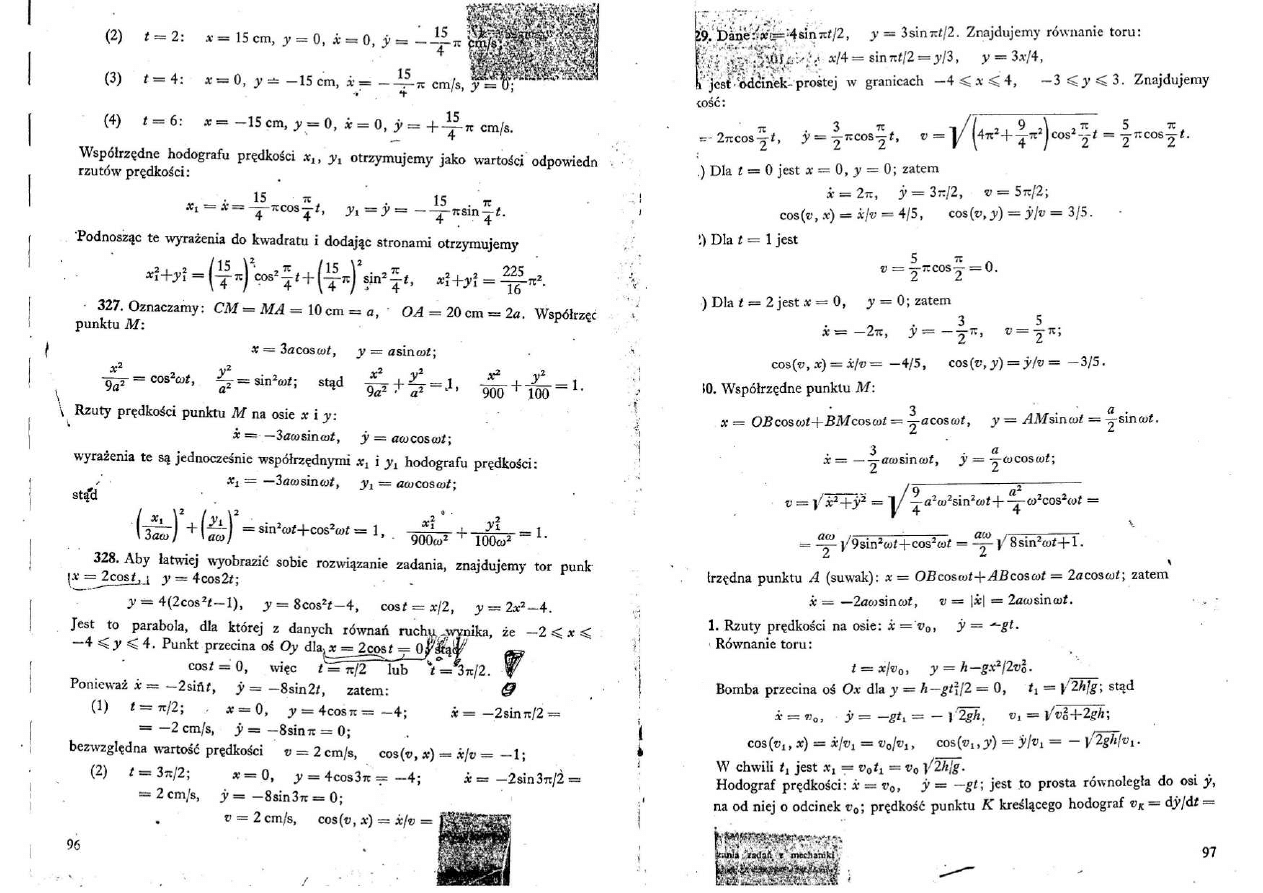 (2) t = 2: x = 15 cm, y = 0, ẋ = 0, ẏ = − 15/4 π cm/s;
(3) t = 4: x = 0, y = −15 cm, ẋ = − 15/4 π cm/s, ẏ = 0;
(4) t = 6: x = −15 cm, y = 0, ẋ = 0, ẏ = + 15/4 π cm/s.
Współrzędne hodografu prędkości x₁, y₁ otrzymujemy jako wartości odpowiedn
rzutów prędkości:
x₁ = ẋ = 15/4 πcos π/4 t, y₁ = ẏ = − 15/4 πsin π/4 t.
Podnosząc te wyrażenia do kwadratu i dodając stronami otrzymujemy
x₁²+y₁² = (15/4 π)² cos² π/4 t + (15/4 π)² sin² π/4 t, x₁²+y₁² = 225/16 π².
327. Oznaczamy: CM = MA = 10 cm = a, OA = 20 cm = 2a. Współrzęd
punktu M:
x = 3acosωt, y = asinωt;
x²/9a² = cos²ωt, y²/a² = sin²ωt; stąd x²/9a² + y²/a² = 1, x²/900 + y²/100 = 1.
Rzuty prędkości punktu M na osie x i y:
ẋ = −3aωsinωt, ẏ = aωcosωt;
wyrażenia te są jednocześnie współrzędnymi x₁ i y₁ hodografu prędkości:
x₁ = −3aωsinωt, y₁ = aωcosωt;
stąd
(x₁/3aω)² + (y₁/aω)² = sin²ωt+cos²ωt = 1, x₁²/900ω² + y₁²/100ω² = 1.
328. Aby łatwiej wyobrazić sobie rozwiązanie zadania, znajdujemy tor punk
x = 2cost, y = 4cos2t;
y = 4(2cos²t−1), y = 8cos²t−4, cost = x/2, y = 2x²−4.
Jest to parabola, dla której z danych równań ruchu wynika, że −2 ⩽ x ⩽
−4 ⩽ y ⩽ 4. Punkt przecina oś Oy dla x = 2cost = 0; stąd
cost = 0, więc t = π/2 lub t = 3π/2. !
Ponieważ ẋ = −2sint, ẏ = −8sin2t, zatem:
(1) t = π/2; x = 0, y = 4cosπ = −4; ẋ = −2sinπ/2 =
= −2 cm/s, ẏ = −8sinπ = 0;
bezwzględna wartość prędkości v = 2 cm/s, cos(v, x) = ẋ/v = −1;
(2) t = 3π/2; x = 0, y = 4cos3π = −4; ẋ = −2sin3π/2 =
= 2 cm/s, ẏ = −8sin3π = 0;
v = 2 cm/s, cos(v, x) = ẋ/v =
96
29. Dane: x = 4sinπt/2, y = 3sinπt/2. Znajdujemy równanie toru:
x/4 = sinπt/2 = y/3, y = 3x/4,
jest odcinek prostej w granicach −4 ⩽ x ⩽ 4, −3 ⩽ y ⩽ 3. Znajdujemy
kość:
= 2πcos π/2 t, ẏ = 3/2 πcos π/2 t, v = √((4π² + 9/4 π²) cos² π/2 t) = 5/2 πcos π/2 t.
) Dla t = 0 jest x = 0, y = 0; zatem
ẋ = 2π, ẏ = 3π/2, v = 5π/2;
cos(v, x) = ẋ/v = 4/5, cos(v, y) = ẏ/v = 3/5.
) Dla t = 1 jest
v = 5/2 πcos π/2 = 0.
) Dla t = 2 jest x = 0, y = 0; zatem
ẋ = −2π, ẏ = − 3/2 π, v = 5/2 π;
cos(v, x) = ẋ/v = −4/5, cos(v, y) = ẏ/v = −3/5.
0. Współrzędne punktu M:
x = OBcosωt+BMcosωt = 3/2 acosωt, y = AMsinωt = a/2 sinωt.
ẋ = − 3/2 aωsinωt, ẏ = a/2 ωcosωt;
v = √(ẋ²+ẏ²) = √(9/4 a²ω²sin²ωt + a²/4 ω²cos²ωt) =
= aω/2 √(9sin²ωt+cos²ωt) = aω/2 √(8sin²ωt+1).
rzędna punktu A (suwak): x = OBcosωt+ABcosωt = 2acosωt; zatem
ẋ = −2aωsinωt, v = |ẋ| = 2aωsinωt.
1. Rzuty prędkości na osie: ẋ = v₀, ẏ = −gt.
Równanie toru:
t = x/v₀, y = h−gx²/2v₀².
Bomba przecina oś Ox dla y = h−gt₁²/2 = 0, t₁ = √(2h/g); stąd
ẋ = v₀, ẏ = −gt₁ = −√(2gh), v₁ = √(v₀²+2gh);
cos(v₁, x) = ẋ/v₁ = v₀/v₁, cos(v₁, y) = ẏ/v₁ = −√(2gh)/v₁.
W chwili t₁ jest x₁ = v₀t₁ = v₀√(2h/g).
Hodograf prędkości: ẋ = v₀, ẏ = −gt; jest to prosta równoległa do osi ẏ,
na od niej o odcinek v₀; prędkość punktu K kreślącego hodograf v_K = dẏ/dt =
zadań z mechaniki
97